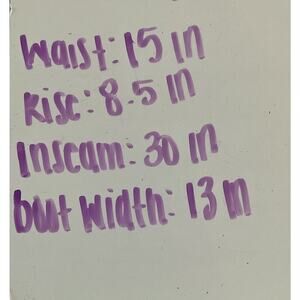 Waist: 15 in
Rise: 8.5 in
Inseam: 30 in
bout width: 13 in